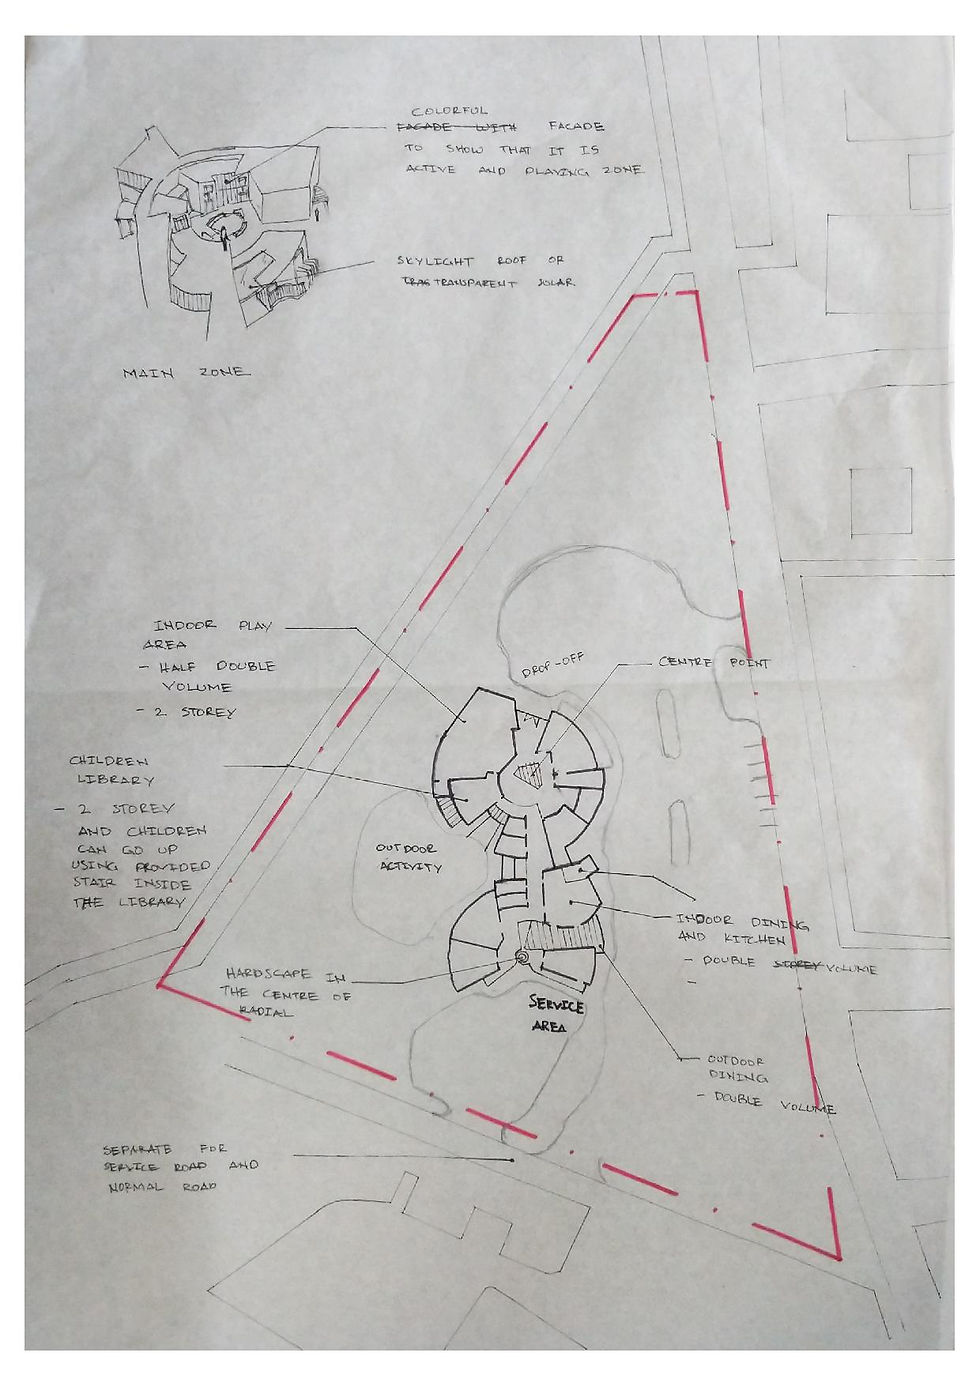 COLORFUL
FACADE WITH FACADE
TO SHOW THAT IT IS
ACTIVE AND PLAYING ZONE
SKYLIGHT ROOF OR
TRAS TRANSPARENT SOLAR
MAIN ZONE
INDOOR PLAY
AREA
- HALF DOUBLE
VOLUME
- 2 STOREY
DROP-OFF
CENTRE POINT
CHILDREN
LIBRARY
- 2 STOREY
AND CHILDREN
CAN GO UP
USING PROVIDED
STAIR INSIDE
THE LIBRARY
OUTDOOR
ACTIVITY
INDOOR DINING
AND KITCHEN
- DOUBLE STOREY VOLUME
-
HARDSCAPE IN
THE CENTRE OF
RADIAL
SERVICE
AREA
OUTDOOR
DINING
- DOUBLE VOLUME
SEPARATE FOR
SERVICE ROAD AND
NORMAL ROAD